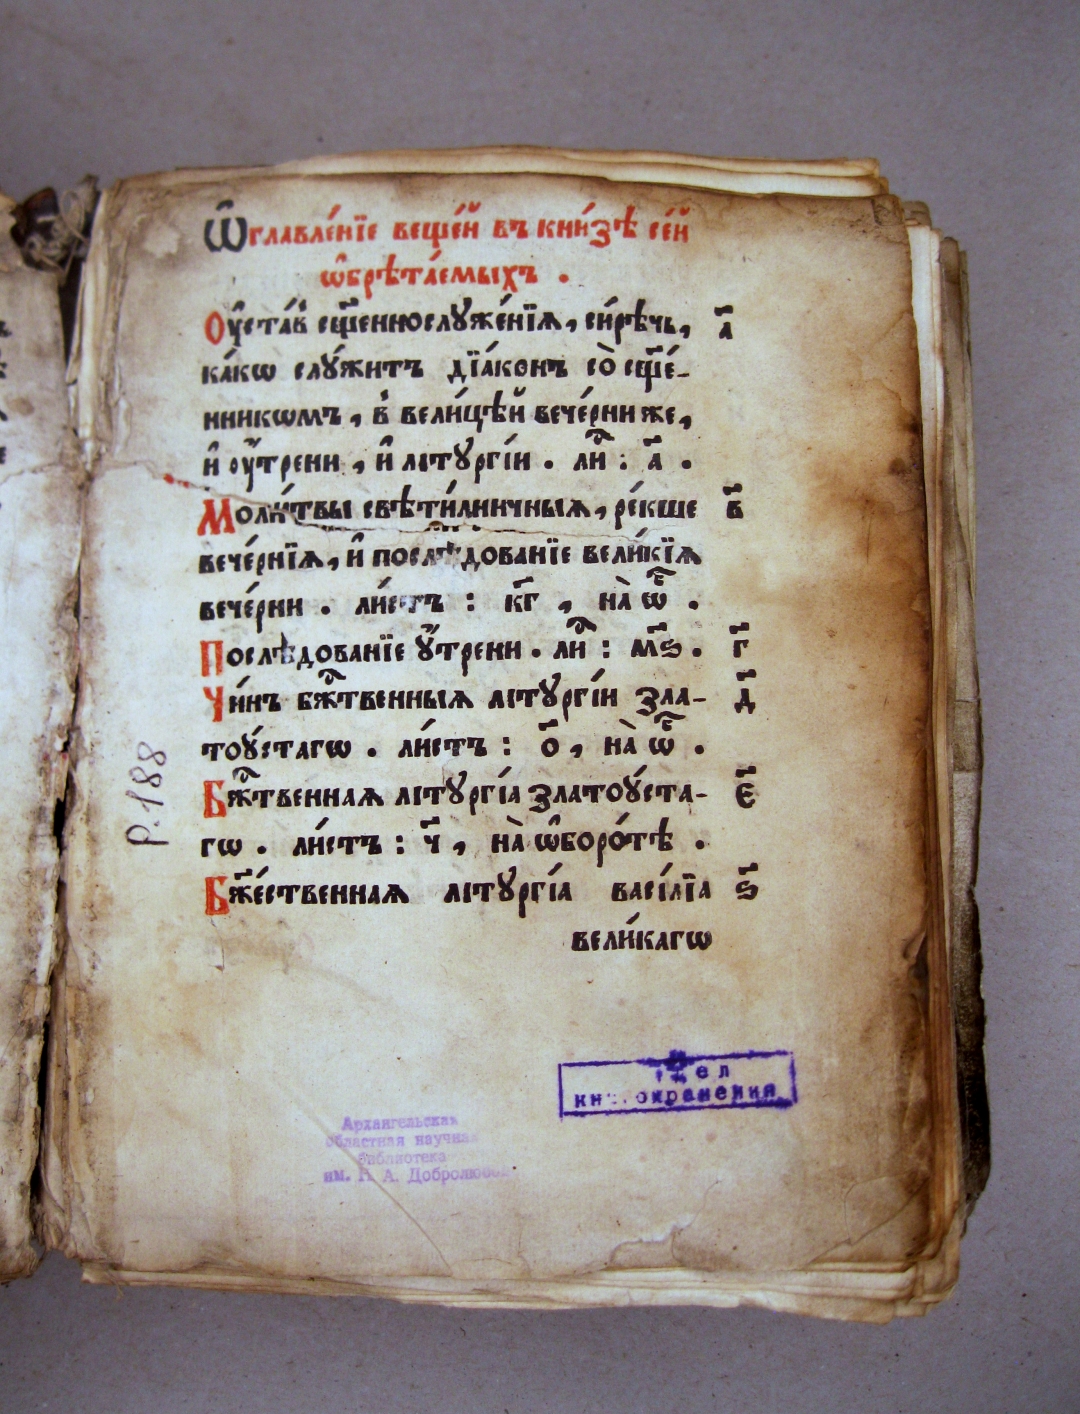 Ѡ҆главле́нїе веще́й въ кни́зѣ се́й
ѡ҆брѣта́емыхъ .
Оу҆ста́въ сщ҃еннослꙋже́нїѧ, си́рѣчь, а҃
ка́кѡ слꙋ́житъ дїа́конъ со̀ сщ҃е́-
нникѡмъ , в҆ вели́цѣй вече́рни же,
и҆ оу҆́трени , и҆ літꙋргі́и . ли : а҃ .
Моли́твы свѣти́лничныѧ, ре́кше в҃
вече́рнїѧ, и҆ послѣ́дованїе вели́кїѧ
вече́рни . ли́стъ : к҃г , на̀ ѡ҆ .
Послѣ́дованїе ᲂу҆́трени . ли : м҃ѕ . г҃
Чи́нъ бж҃твенныѧ літꙋргі́и зла- д҃
тоꙋ́стагѡ . ли́стъ : о҃ , на̀ ѡ҆ .
Бж҃твеннаѧ літꙋргі́а златоꙋ́ста- є҃
гѡ . ли́стъ : ч҃ , на̀ ѡ҆боро́тѣ .
Бж҃е́ственнаѧ літꙋргі́а васі́лїа ѕ҃
вели́кагѡ
Р.188
Архангельская
областная научная
библиотека
им. Н А. Добролюбова